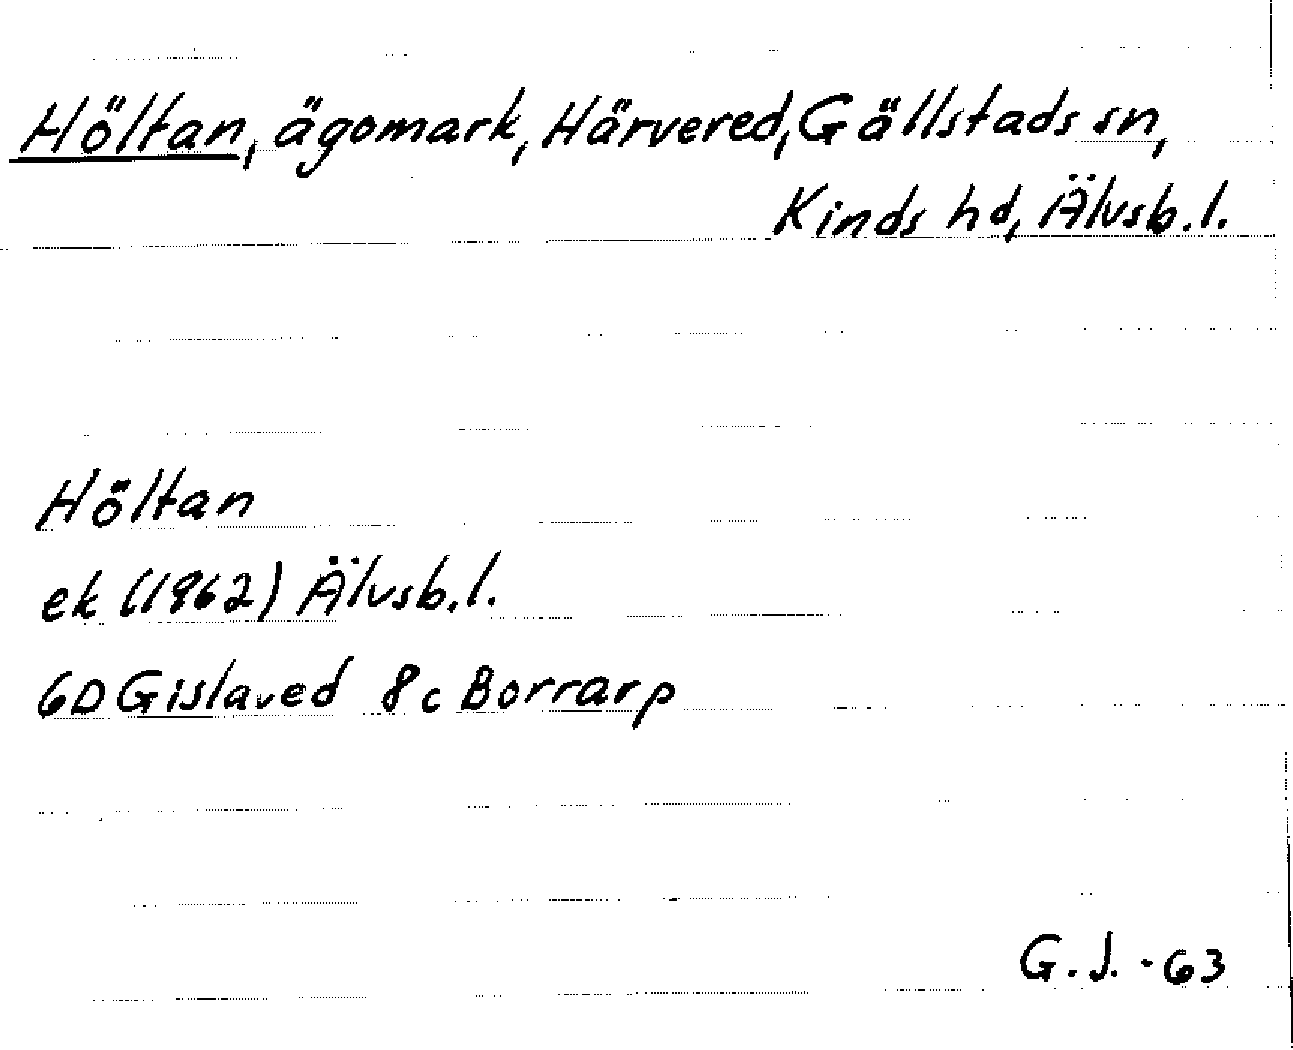 Höltan, ägomark, Härvered, Gällstads sn,
Kinds hd, Älvsb. l.
Höltan
ek (1962) Älvsb. l.
6D Gislaved 8c Borrarp
G. J. -63